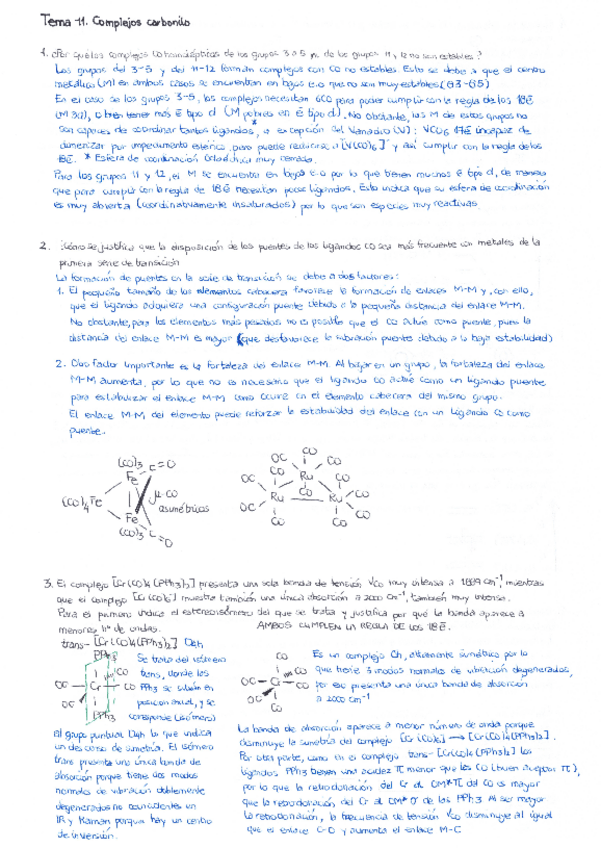 Tema 11. Complejos carbonilo
1. ¿Por qué los complejos CO homolépticos de los grupos 3 a 5 y de los grupos 11 y 12 no son estables?
Los grupos del 3-5 y del 11-12 forman complejos con CO no estables. Esto se debe a que el centro
metálico (M) en ambos casos se encuentran en bajos e.o que no son muy estables (G3-G5)
En el caso de los grupos 3-5, los complejos necesitan 6CO para poder cumplir con la regla de los 18ē
o bien tener más ē tipo d (M pobres en ē tipo d). No obstante, los M de estos grupos no
son capaces de coordinar tantos ligandos, a excepción del Vanadio (V): V(CO)6 17ē incapaz de
dimerizar por impedimento estérico, pero puede reducirse a [V(CO)6]⁻ y así cumplir con la regla de los
18ē. * Esfera de coordinación octaédrica muy cerrada.
Para los grupos 11 y 12, el M se encuentra en bajos e.o por lo que tienen muchos ē tipo d, de manera
que para cumplir con la regla de 18ē necesitan pocos ligandos. Esto indica que su esfera de coordinación
es muy abierta (coordinativamente insaturados) por lo que son especies muy reactivas.
2. ¿Cómo se justifica que la disposición de los puentes de los ligandos CO sea más frecuente con metales de la
primera serie de transición
La formación de puentes en la serie de transición se debe a dos factores:
1. El pequeño tamaño de los elementos cabecera favorece la formación de enlaces M-M y, con ello,
que el ligando adquiera una configuración puente debido a la pequeña distancia del enlace M-M.
No obstante, para los elementos más pesados no es posible que el CO actúe como puente, pues la
distancia del enlace M-M es mayor (que desfavorece la vibración puente debido a la baja estabilidad)
2. Otro factor importante es la fortaleza del enlace M-M. Al bajar en un grupo, la fortaleza del enlace
M-M aumenta, por lo que no es necesario que el ligando CO actúe como un ligando puente
para estabilizar el enlace M-M como ocurre en el elemento cabecera del mismo grupo.
El enlace M-M del elemento puede reforzar la estabilidad del enlace con un ligando CO como
puente.
(CO)3 C=O
Fe
(CO)4 Fe
μ-CO
asimétricos
Fe
(CO)3 C=O
CO
OC CO
CO Ru
OC CO
Ru CO Ru CO
OC CO
CO CO
3. El complejo [Cr(CO)4(PPh3)2] presenta una sola banda de tensión νCO muy intensa a 1889 cm⁻¹, mientras
que el complejo [Cr(CO)6] muestra también una única absorción a 2000 cm⁻¹, también muy intensa.
Para el primero indica el estereoisómero del que se trata y justifica por qué la banda aparece a
menores nº de ondas. AMBOS CUMPLEN LA REGLA DE LOS 18Ē.
trans-[Cr(CO)4(PPh3)2] D4h
PPh3
CO
OC Cr CO
OC
PPh3
Se trata del isómero
trans, donde los
PPh3 se sitúan en
posición axial, y se
corresponde (isómero)
al grupo puntual D4h lo que indica
un descenso de simetría. El isómero
trans presenta una única banda de
absorción porque tiene dos modos
normales de vibración doblemente
degenerados no coincidentes en
IR y Raman porque hay un centro
de inversión.
CO
CO
OC Cr CO
OC
CO
Es un complejo Oh, altamente simétrico por lo
que tiene 3 modos normales de vibración degenerados,
por eso presenta una única banda de absorción
a 2000 cm⁻¹
La banda de absorción aparece a menor número de onda porque
disminuye la simetría del complejo [Cr(CO)6] → [Cr(CO)4(PPh3)2].
Por otra parte, como en el complejo trans-[Cr(CO)4(PPh3)2] los
ligandos PPh3 tienen una acidez π menor que los CO (buen aceptor π),
por lo que la retrodonación del Cr al OM*π del CO es mayor
que la retrodonación del Cr al OM*σ de los PPh3. Al ser mayor
la retrodonación, la frecuencia de tensión νCO disminuye al igual
que el enlace C-O y aumenta el enlace M-C